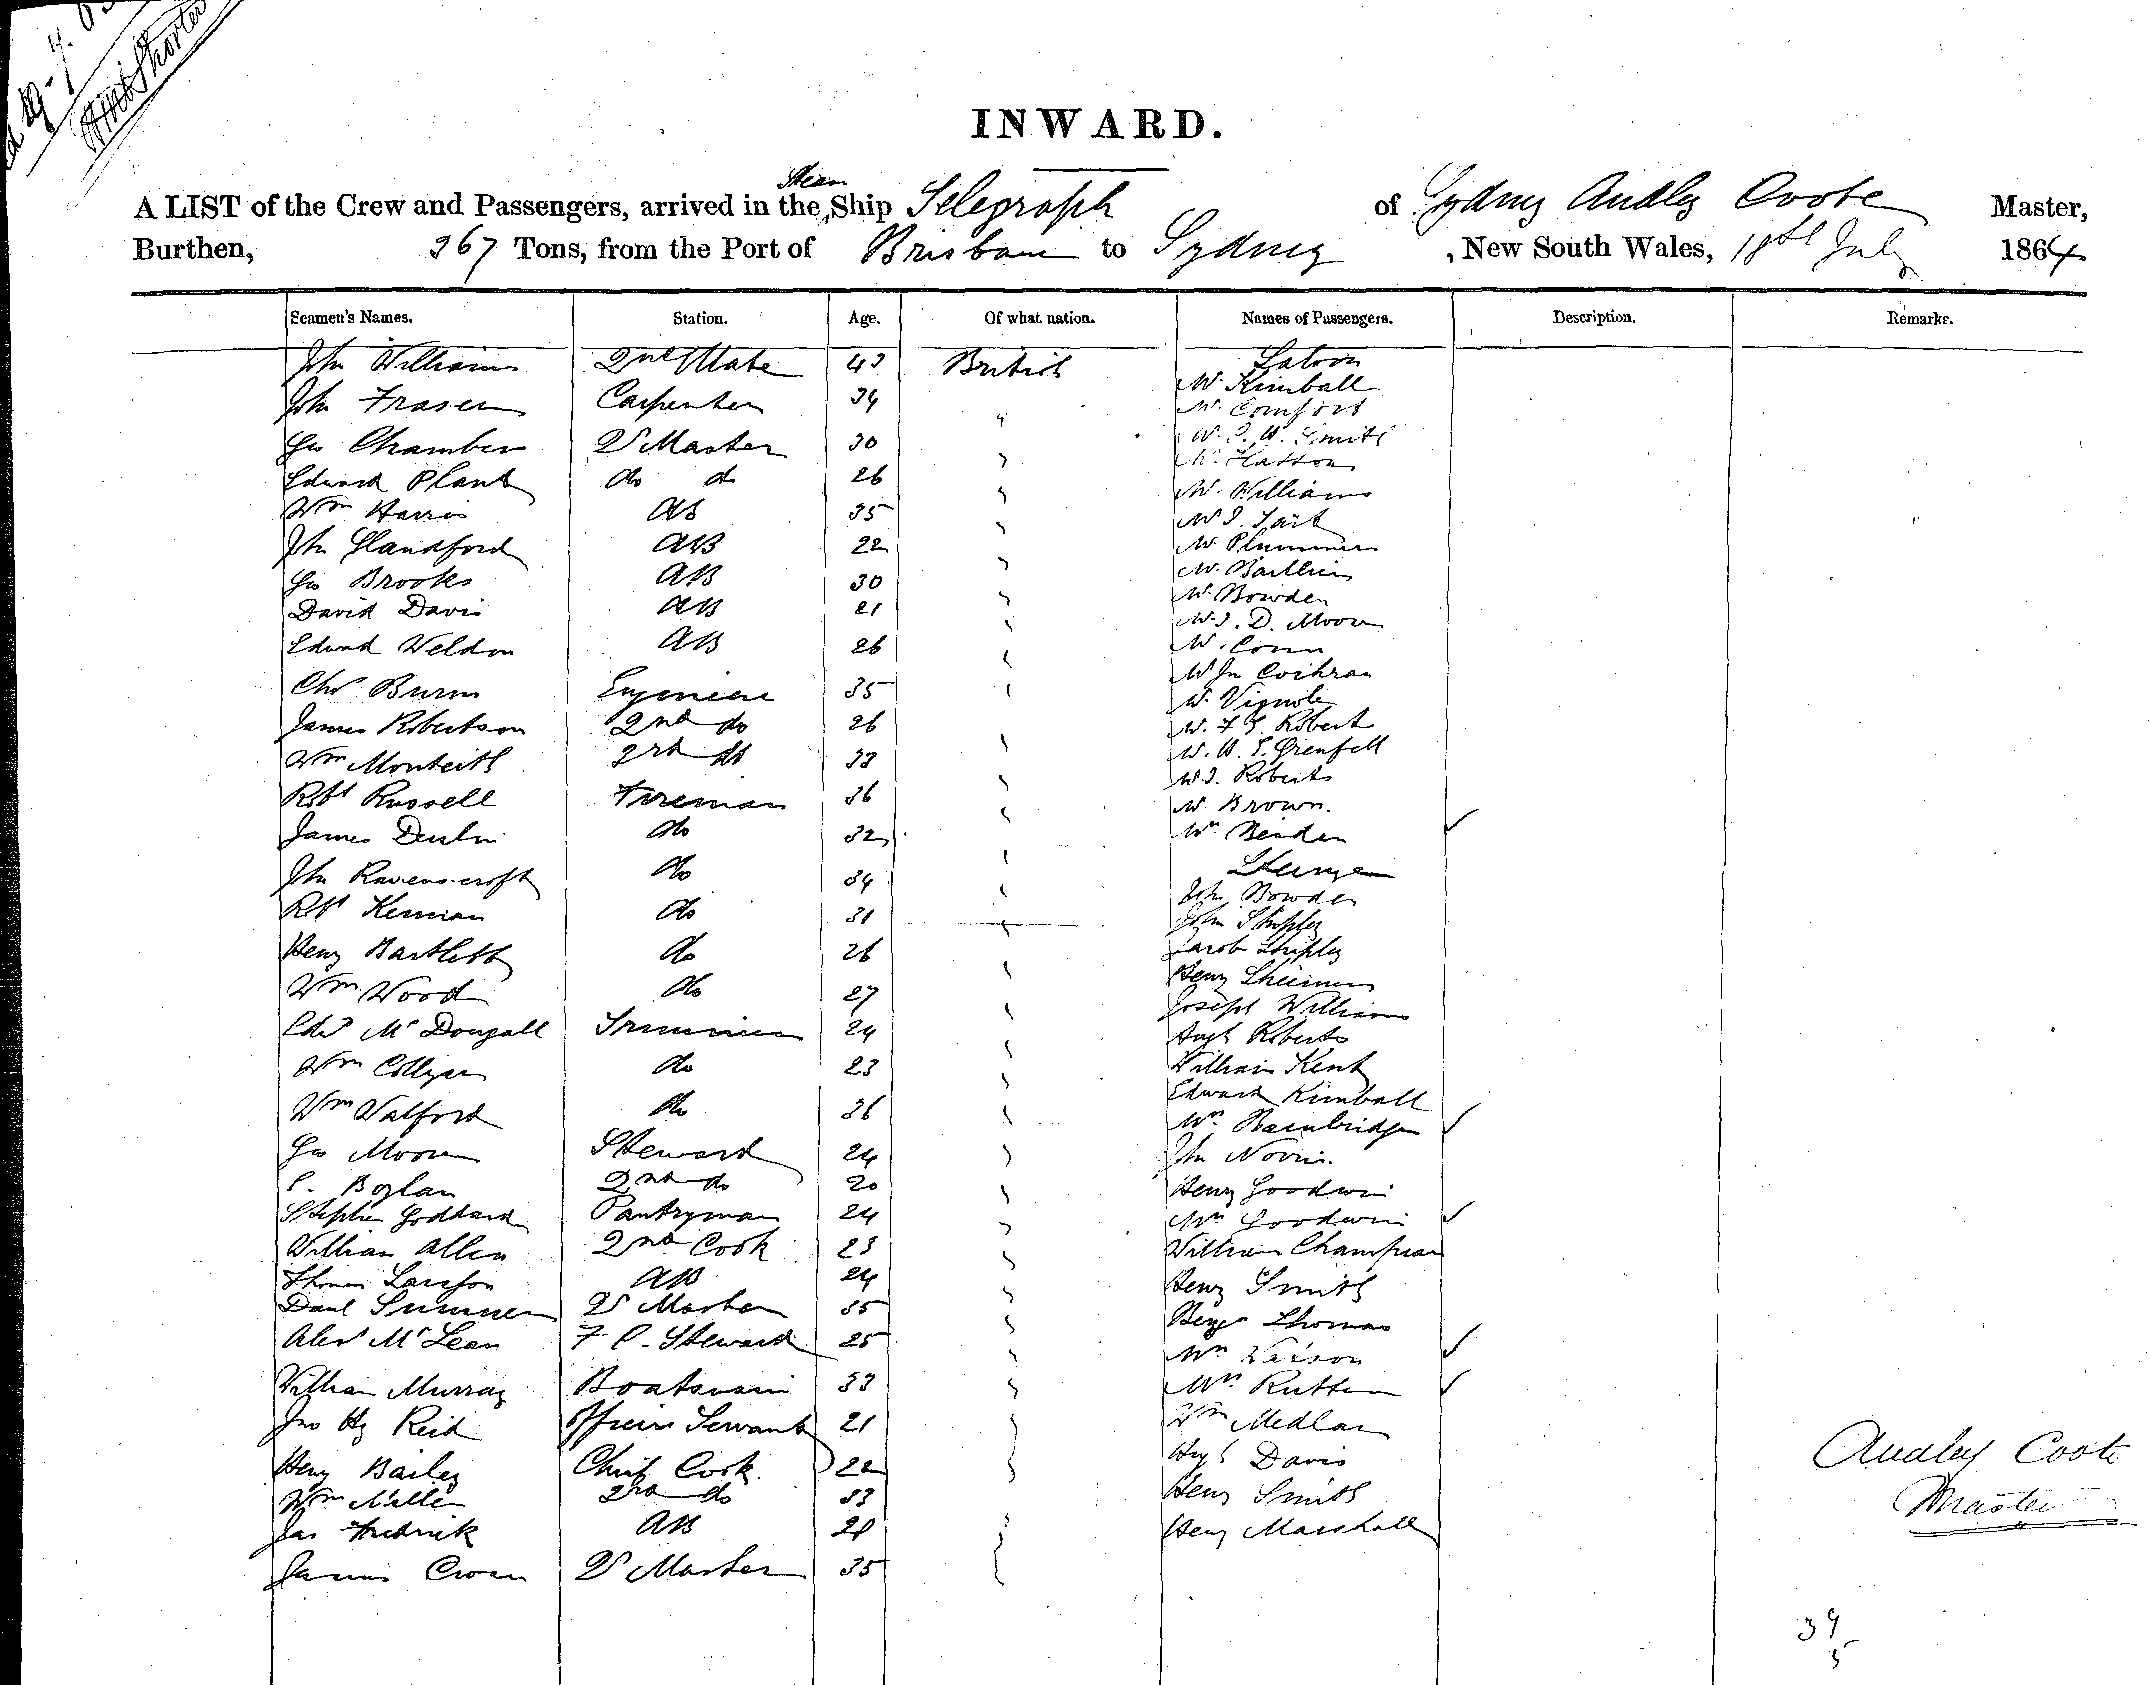 INWARD.
A LIST of the Crew and Passengers, arrived in the Steam Ship Telegraph of Sydney Audley Coote Master,
Burthen, 367 Tons, from the Port of Brisbane to Sydney , New South Wales, 18th July 1864
Seamen's Names. Station. Age. Of what nation. Names of Passengers. Description. Remarks.
John Williams 2nd Mate 43 British Saloon
Mr Kimball
John Fraser Carpenter 34 " Mr Comfort
Geo Chambers Qr Master 30 Smith
Edward Plant do do 26 Mr Hasson
Wm Harris AB 35 Mr Williams
Jn Handford AB 22 Mr Plummer
Geo Brooks AB 30
David Davis AB 21 Mr Bowden
Mr J. D. Moore
Edward Weldon AB 26 Mr Conn
Mr Jn Cochran
Chs Burns Engineer 35 Mr Vignoles
James Robertson 2nd do 26 Mr F G. Robert
Wm Monteith 3rd do 33 Mr W. S. Grenfell
Mr J. Roberts
Robt Russell Fireman 36 Mr Brown.
James Devlin do 32 Mrs Bearden
Jn Ravenscroft do 34 Steerage
John Bowden
Robt Kernan do 31 John Shipley
Henry Bartlett do 26 Jacob Shipley
Wm Wood do 27 Henry
Joseph Williams
Edwd McDougall Trimmer 24 Hugh Roberts
Wm Collyer do 23 William Kent
Edward Kimball
Wm Walford do 36 Mrs Bainbridge
Geo Moore Steward 24 Jn Norris.
P. Boylan 2nd do 20 Henry Goodwin
Stephen Goddard Pantryman 24 Mrs Goodwin
William Allen 2nd Cook 23 William Champion
Thomas AB 24 Henry Smith
Danl Summers Qr Master 35
Thomas
Alexr McLean F. C. Steward 25 Mrs Watson
William Murray Boatswain 33 Mrs Rutter
Jno Hy Reid Officers Servant 21 Wm Medlan
Henry Bailey Chief Cook. 22 Hugh Davis
Wm Miller 3rd do 33 Henry Smith
Jas Fredrick AB 20 Henry Marshall
James Crowe Qr Master 35
Audley Coote
Master
39
5